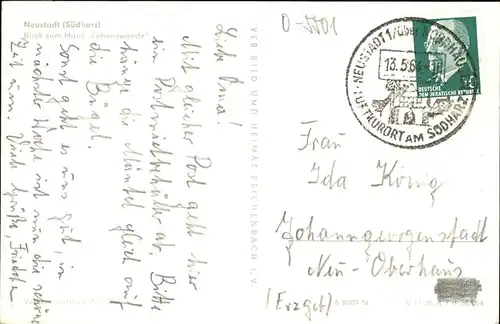 Neustadt (Südharz)
Blick zum Haus „Lebenswende"
Liebe Oma!
Mit gleicher Post geht hier
ein Postmietbehälter ab. Bitte
hänge die Mäntel gleich auf
die Bügel.
Sonst geht es uns gut, in
nächster Woche ist nun die schöne
Zeit um. Viele Grüße,
VEB BILD UND HEIMAT REICHENBACH I. V.
O-5501
NEUSTADT 1 / über NORDHAUSEN
13.5.6
LUFTKURORT AM SÜDHARZ
10
DEUTSCHE
DEMOKRATISCHE REPUBLIK
Frau
Ida König
Johanngeorgenstadt
Neu-Oberhaus
(Erzgeb)